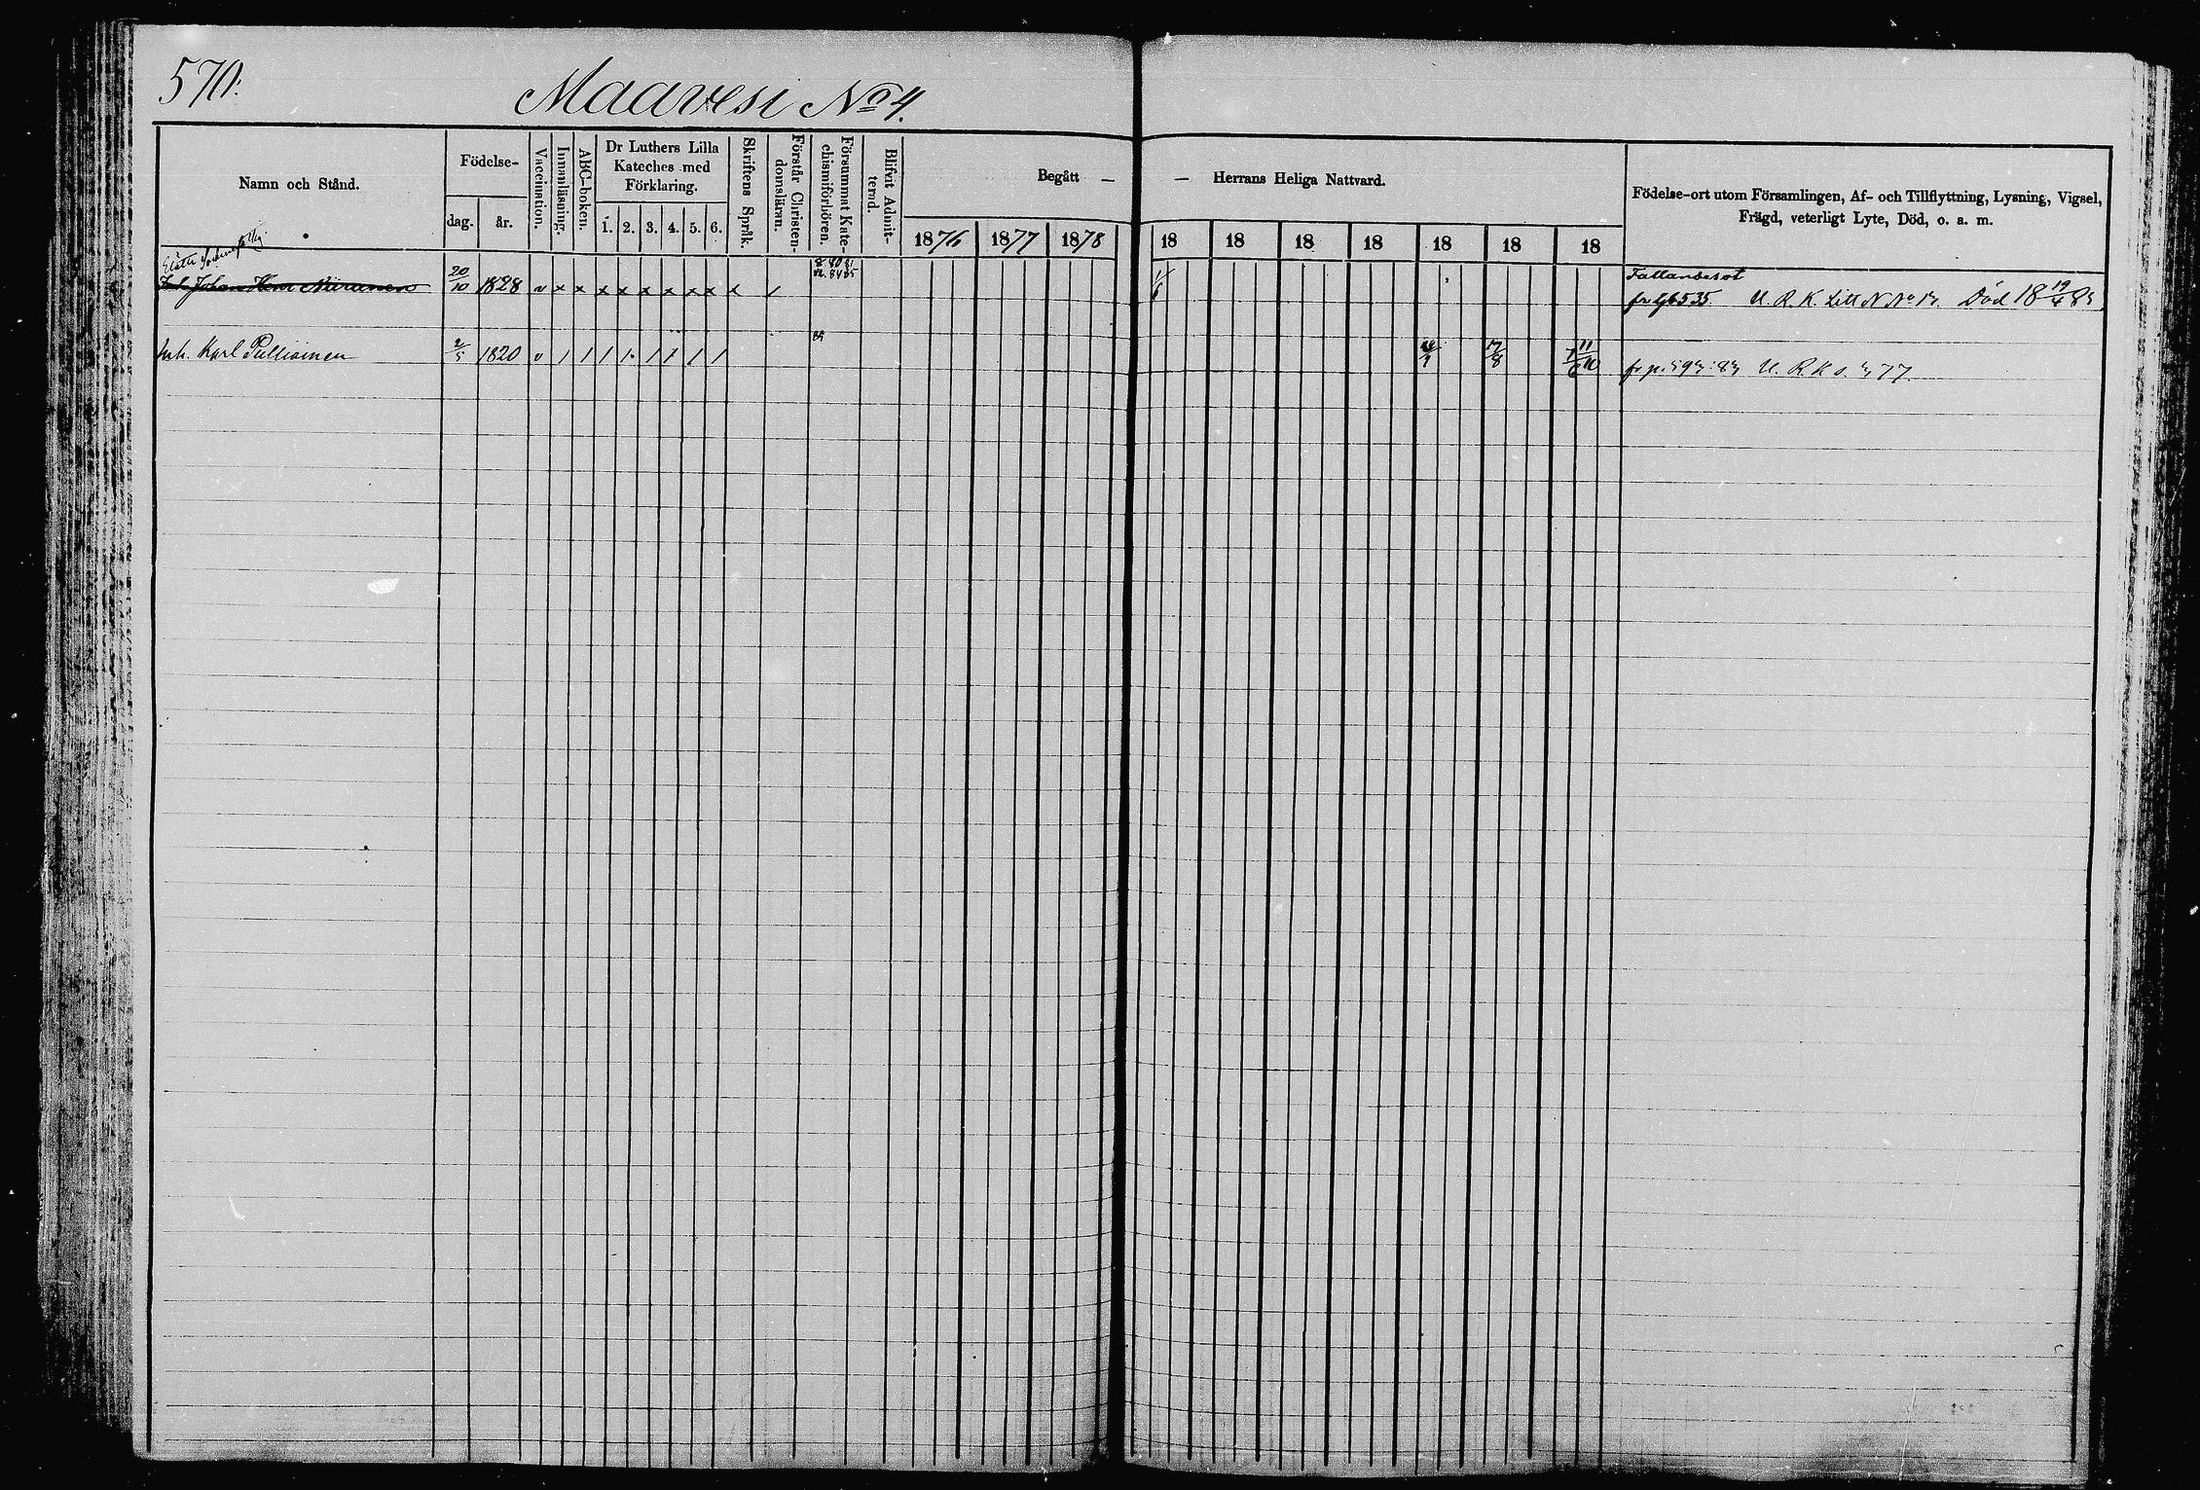 570.
Maavesi No 4.
Namn och Stånd.
Födelse-
dag.
år.
Vaccination.
Innanläsning.
ABC-boken.
Dr Luthers Lilla
Kateches med
Förklaring.
1. 2. 3. 4. 5. 6.
Skriftens Språk.
Förstår Christen-
domsläran.
Försummat Kate-
chismiförhören.
Blifvit Admit-
terad.
Begått — — Herrans Heliga Nattvard.
1876 1877 1878 18 18 18 18 18 18 18
Födelse-ort utom Församlingen, Af- och Tillflyttning, Lysning, Vigsel,
Frägd, veterligt Lyte, Död, o. a. m.
Johan Niiranen 20/10 1828 v x x x x x x x x x /
Fallandesot
535 U. R. K. Litt N. No Död 18 19/4 8
Inh. Karl Pulliainen 2/5 1820 v / / / / / / / / 17/8 fr p. U. R. K. s. 77.